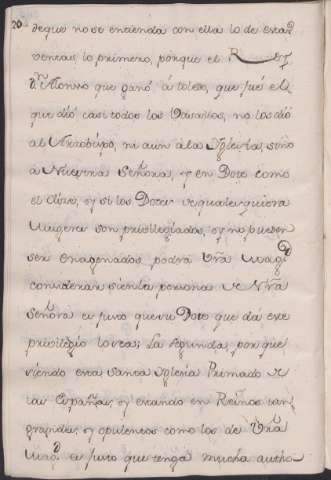 20
de que no se entienda con ella lo de estas
ventas; lo primero, porque el Rey
Dn. Alonso que ganó á toledo, que fué el
que dió casi todos los Vasallos, no los dió
al Arzobispo, ni aun á la Iglesia, sino
á Nuestra Señora, y en Dote como
el dixo, y si los Dotes de qualequiera
Mugeres son privilegiados, y no pueden
ser enagenados, podrá Vrã Magd.
considerar siendo la persona de Nrã
Señora es justo que su Dote que da este
privilegio lo sea; La segunda, porque
siendo esta Santa Iglesia Primado de
las Españas, y estando en Reynos tan
grandes, y opulentos como los de Vrã.
Magd. es justo que tenga mucha autho-